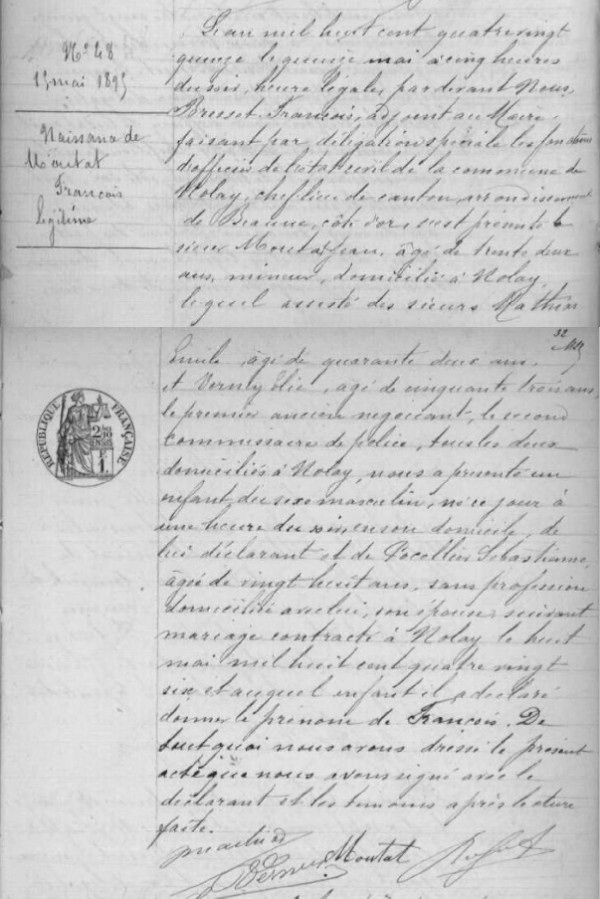 N° 48
15 mai 1895
Naissance de
Moutat
François
légitime
L'an mil huit cent quatre vingt
quinze le quinze mai à cinq heures
du soir, heure légale, par devant Nous,
François, adjoint au Maire
faisant par délégation spéciale les fonctions
d'officier de l'état civil de la commune de
Nolay, chef lieu de canton, arrondissement
de Beaune, côte d'or, s'est présenté le
sieur Moutat Jean, âgé de trente deux
ans, mineur, domicilié à Nolay
lequel assisté des sieurs Mathieu
32
Emile âgé de quarante deux ans,
et Verney âgé de cinquante trois ans,
le premier ancien negociant, le second
commissaire de police, tous les deux
domiciliés à Nolay, nous a présenté un
enfant du sexe masculin, né ce jour à
une heure du en son domicile, de
lui déclarant et de Sébastienne,
âgée de vingt huit ans, sans profession
domiciliée avec lui, son épouse, suivant
mariage contracté à Nolay le huit
mai mil huit cent quatre vingt
six, et auquel enfant il a déclaré
donner le prénom de François. De
tout quoi nous avons dressé le présent
acte que nous avons signé avec le
déclarant et les temoins après lecture
faite.
Moutat
RÉPUBLIQUE FRANÇAISE